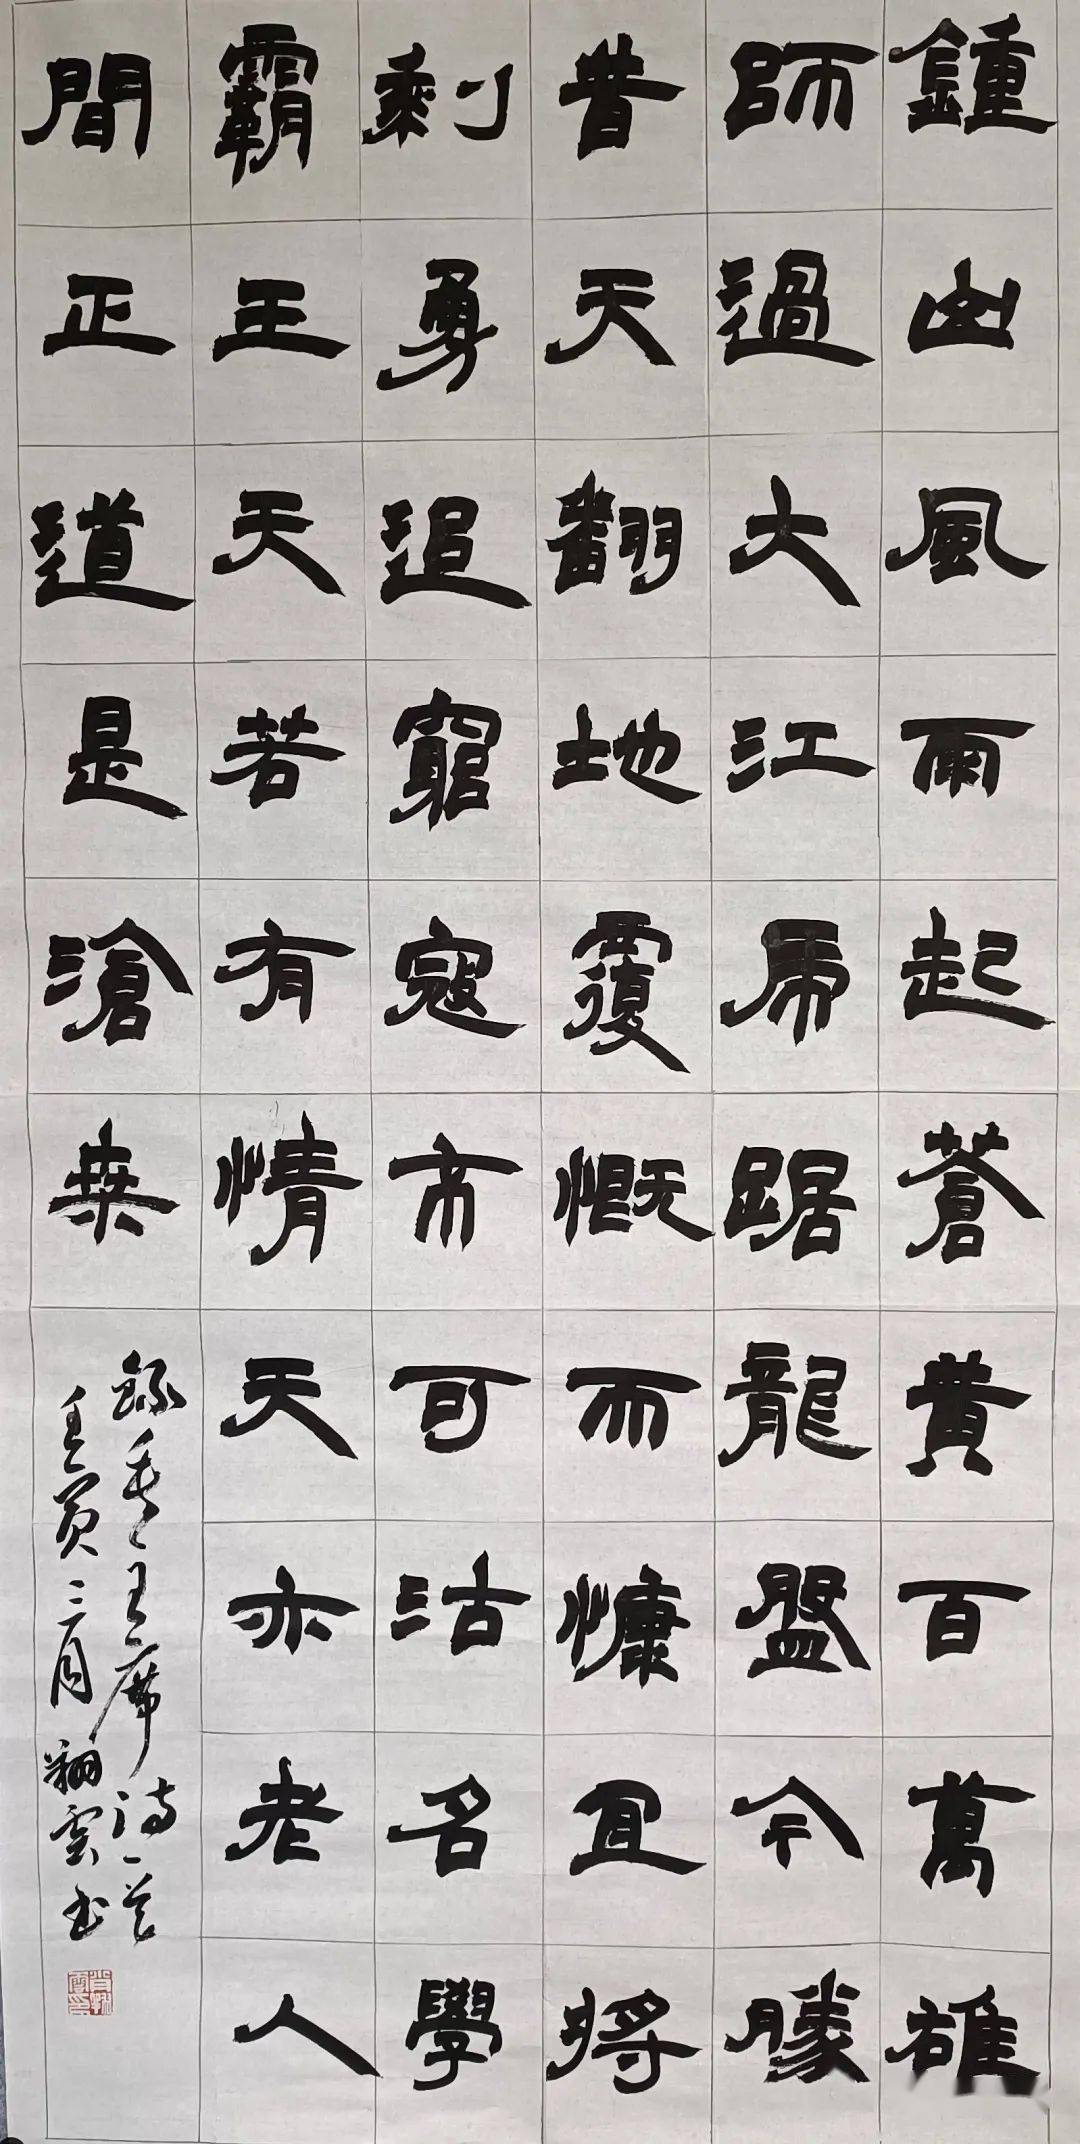 鍾山風雨起蒼黃百萬雄
師過大江虎踞龍盤今勝
昔天翻地覆慨而慷宜將
剩勇追窮寇不可沽名學
霸王天若有情天亦老人
間正道是滄桑
錄毛主席詩一首
壬寅三月翔雲書